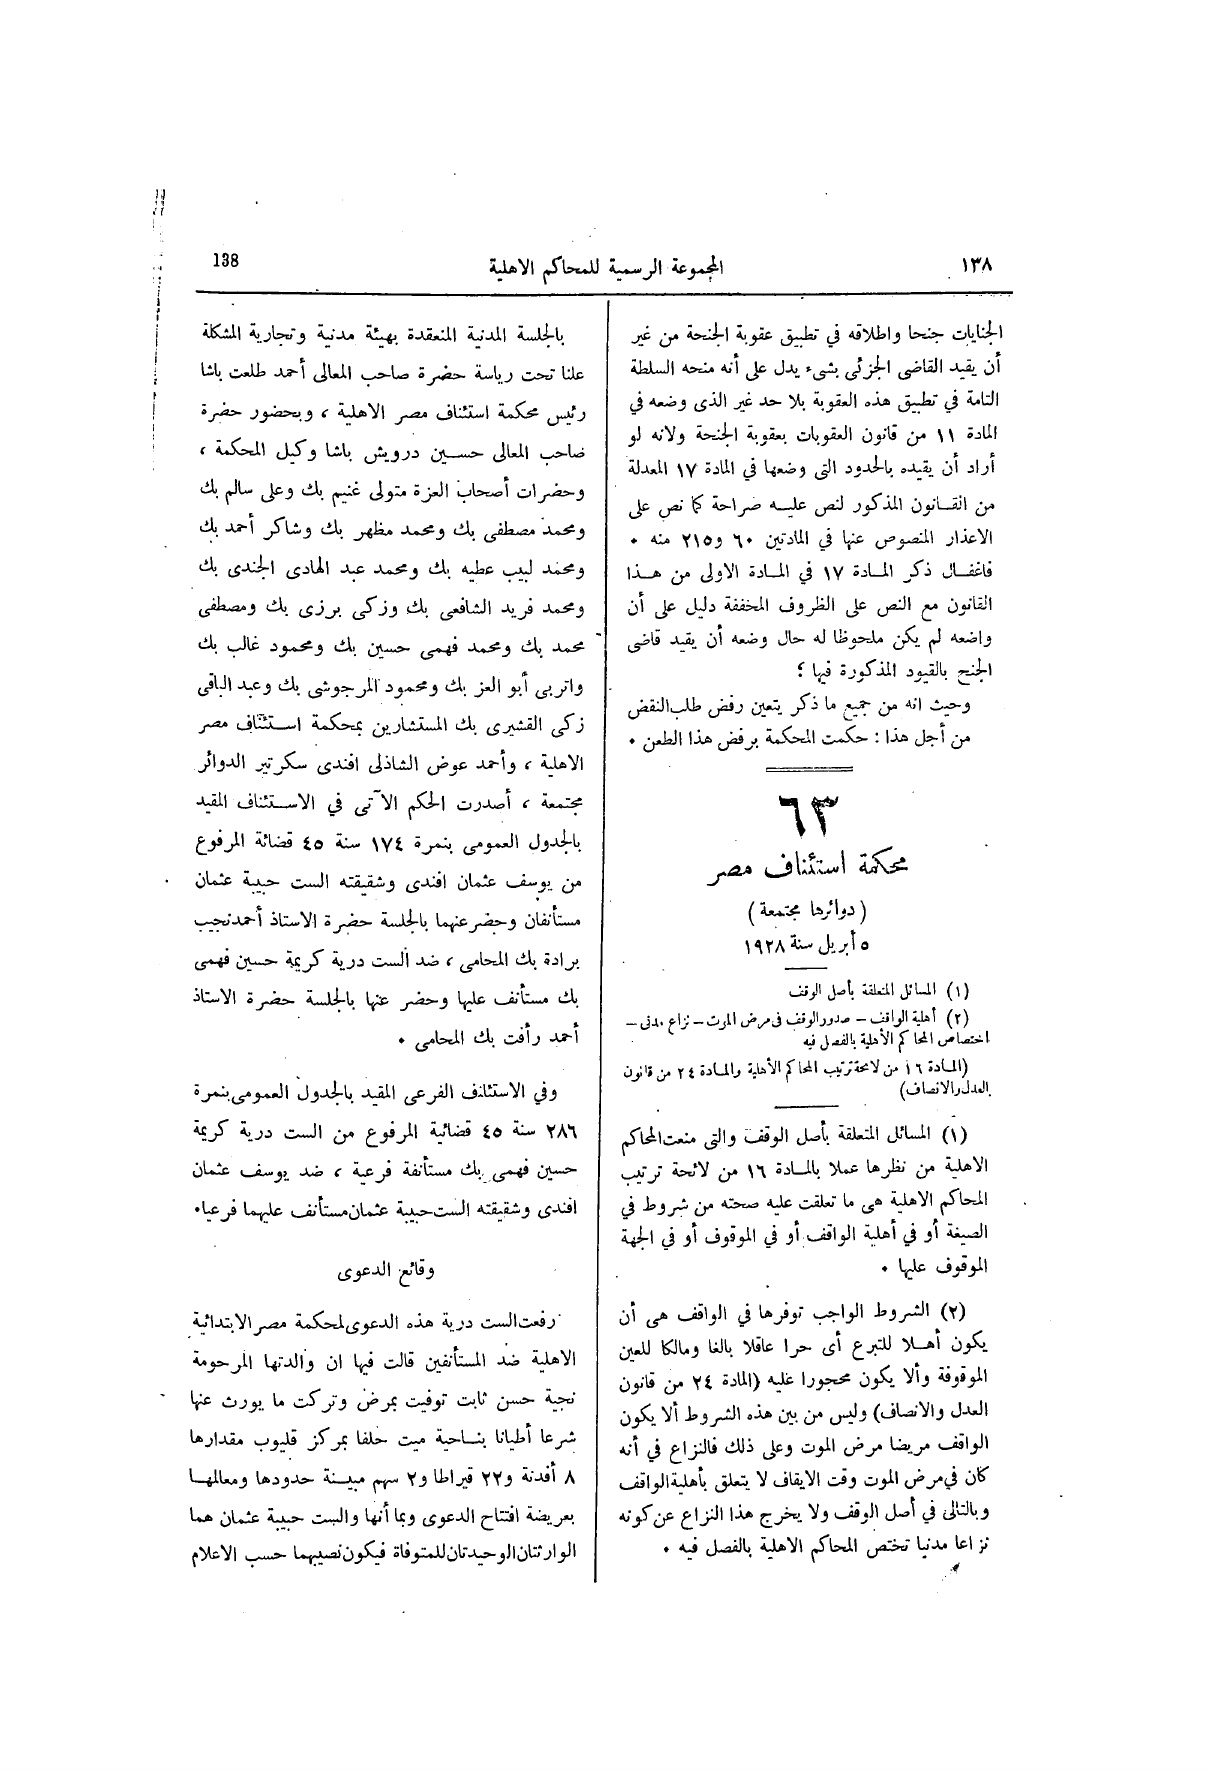 ١٣٨
المجموعة الرسمية للمحاكم الاهلية
138
الجنايات جنحا واطلاقه في تطبيق عقوبة الجنحة من غير
أن يقيد القاضى الجزئى بشىء يدل على أنه منحه السلطة
التامة في تطبيق هذه العقوبة بلا حد غير الذى وضعه في
المادة ١١ من قانون العقوبات بعقوبة الجنحة ولانه لو
أراد أن يقيده بالحدود التى وضعها في المادة ١٧ المعدلة
من القانون المذكور لنص عليه صراحة كما نص على
الاعذار المنصوص عنها في المادتين ٦٠ و٢١٥ منه .
فاغفال ذكر المادة ١٧ في المادة الاولى من هذا
القانون مع النص على الظروف المخففة دليل على أن
واضعه لم يكن ملحوظا له حال وضعه أن يقيد قاضى
الجنح بالقيود المذكورة فيها ؛
وحيث انه من جميع ما ذكر يتعين رفض طلب النقض
من أجل هذا : حكمت المحكمة برفض هذا الطعن .
٦٣
محكمة استئناف مصر
( دوائرها مجتمعة )
٥ أبريل سنة ١٩٢٨
(١) المسائل المتعلقة بأصل الوقف
(٢) أهلية الواقف – صدور الوقف فى مرض الموت – نزاع مدنى –
اختصاص المحاكم الأهلية بالفصل فيه
(المادة ١٦ من لائحة ترتيب المحاكم الأهلية والمادة ٢٤ من قانون
العدل والانصاف)
(١) المسائل المتعلقة بأصل الوقف والتى منعت المحاكم
الاهلية من نظرها عملا بالمادة ١٦ من لائحة ترتيب
المحاكم الاهلية هى ما تعلقت عليه صحته من شروط في
الصيغة أو في أهلية الواقف أو في الموقوف أو في الجهة
الموقوف عليها .
(٢) الشروط الواجب توفرها في الواقف هى أن
يكون أهلا للتبرع أى حرا عاقلا بالغا ومالكا للعين
الموقوفة وألا يكون محجورا عليه (المادة ٢٤ من قانون
العدل والانصاف) وليس من بين هذه الشروط ألا يكون
الواقف مريضا مرض الموت وعلى ذلك فالنزاع في أنه
كان في مرض الموت وقت الايقاف لا يتعلق بأهلية الواقف
وبالتالى في أصل الوقف ولا يخرج هذا النزاع عن كونه
نزاعا مدنيا تختص المحاكم الاهلية بالفصل فيه .
بالجلسة المدنية المنعقدة بهيئة مدنية وتجارية المشكلة
علنا تحت رياسة حضرة صاحب المعالى أحمد طلعت باشا
رئيس محكمة استئناف مصر الاهلية ، وبحضور حضرة
صاحب المعالى حسين درويش باشا وكيل المحكمة ،
وحضرات أصحاب العزة متولى غنيم بك وعلى سالم بك
ومحمد مصطفى بك ومحمد مظهر بك وشاكر أحمد بك
ومحمد لبيب عطيه بك ومحمد عبد الهادى الجندى بك
ومحمد فريد الشافعى بك وزكى برزى بك ومصطفى
محمد بك ومحمد فهمى حسين بك ومحمود غالب بك
واتربى أبو العز بك ومحمود المرجوشى بك وعبد الباقى
زكى القشيرى بك المستشارين بمحكمة استئناف مصر
الاهلية ، وأحمد عوض الشاذلى افندى سكرتير الدوائر
مجتمعة ، أصدرت الحكم الآتى في الاستئناف المقيد
بالجدول العمومى بنمرة ١٧٤ سنة ٤٥ قضائة المرفوع
من يوسف عثمان افندى وشقيقته الست حبيبة عثمان
مستأنفان وحضر عنهما بالجلسة حضرة الاستاذ أحمد نجيب
برادة بك المحامى ، ضد الست درية كريمة حسين فهمى
بك مستأنف عليها وحضر عنها بالجلسة حضرة الاستاذ
أحمد رأفت بك المحامى .
وفى الاستئناف الفرعى المقيد بالجدول العمومى بنمرة
٢٨٦ سنة ٤٥ قضائية المرفوع من الست درية كريمة
حسين فهمى بك مستأنفة فرعية ، ضد يوسف عثمان
افندى وشقيقته الست حبيبة عثمان مستأنف عليهما فرعيا.
وقائع الدعوى
رفعت الست درية هذه الدعوى لمحكمة مصر الابتدائية
الاهلية ضد المستأنفين قالت فيها ان والدتها المرحومة
نجية حسن ثابت توفيت بمرض وتركت ما يورث عنها
شرعا أطيانا بناحية ميت حلفا بمركز قليوب مقدارها
٨ أفدنة و٢٢ قيراطا و٢ سهم مبينة حدودها ومعالمها
بعريضة افتتاح الدعوى وبما أنها والست حبيبة عثمان هما
الوارثتان الوحيدتان للمتوفاة فيكون نصيبهما حسب الاعلام